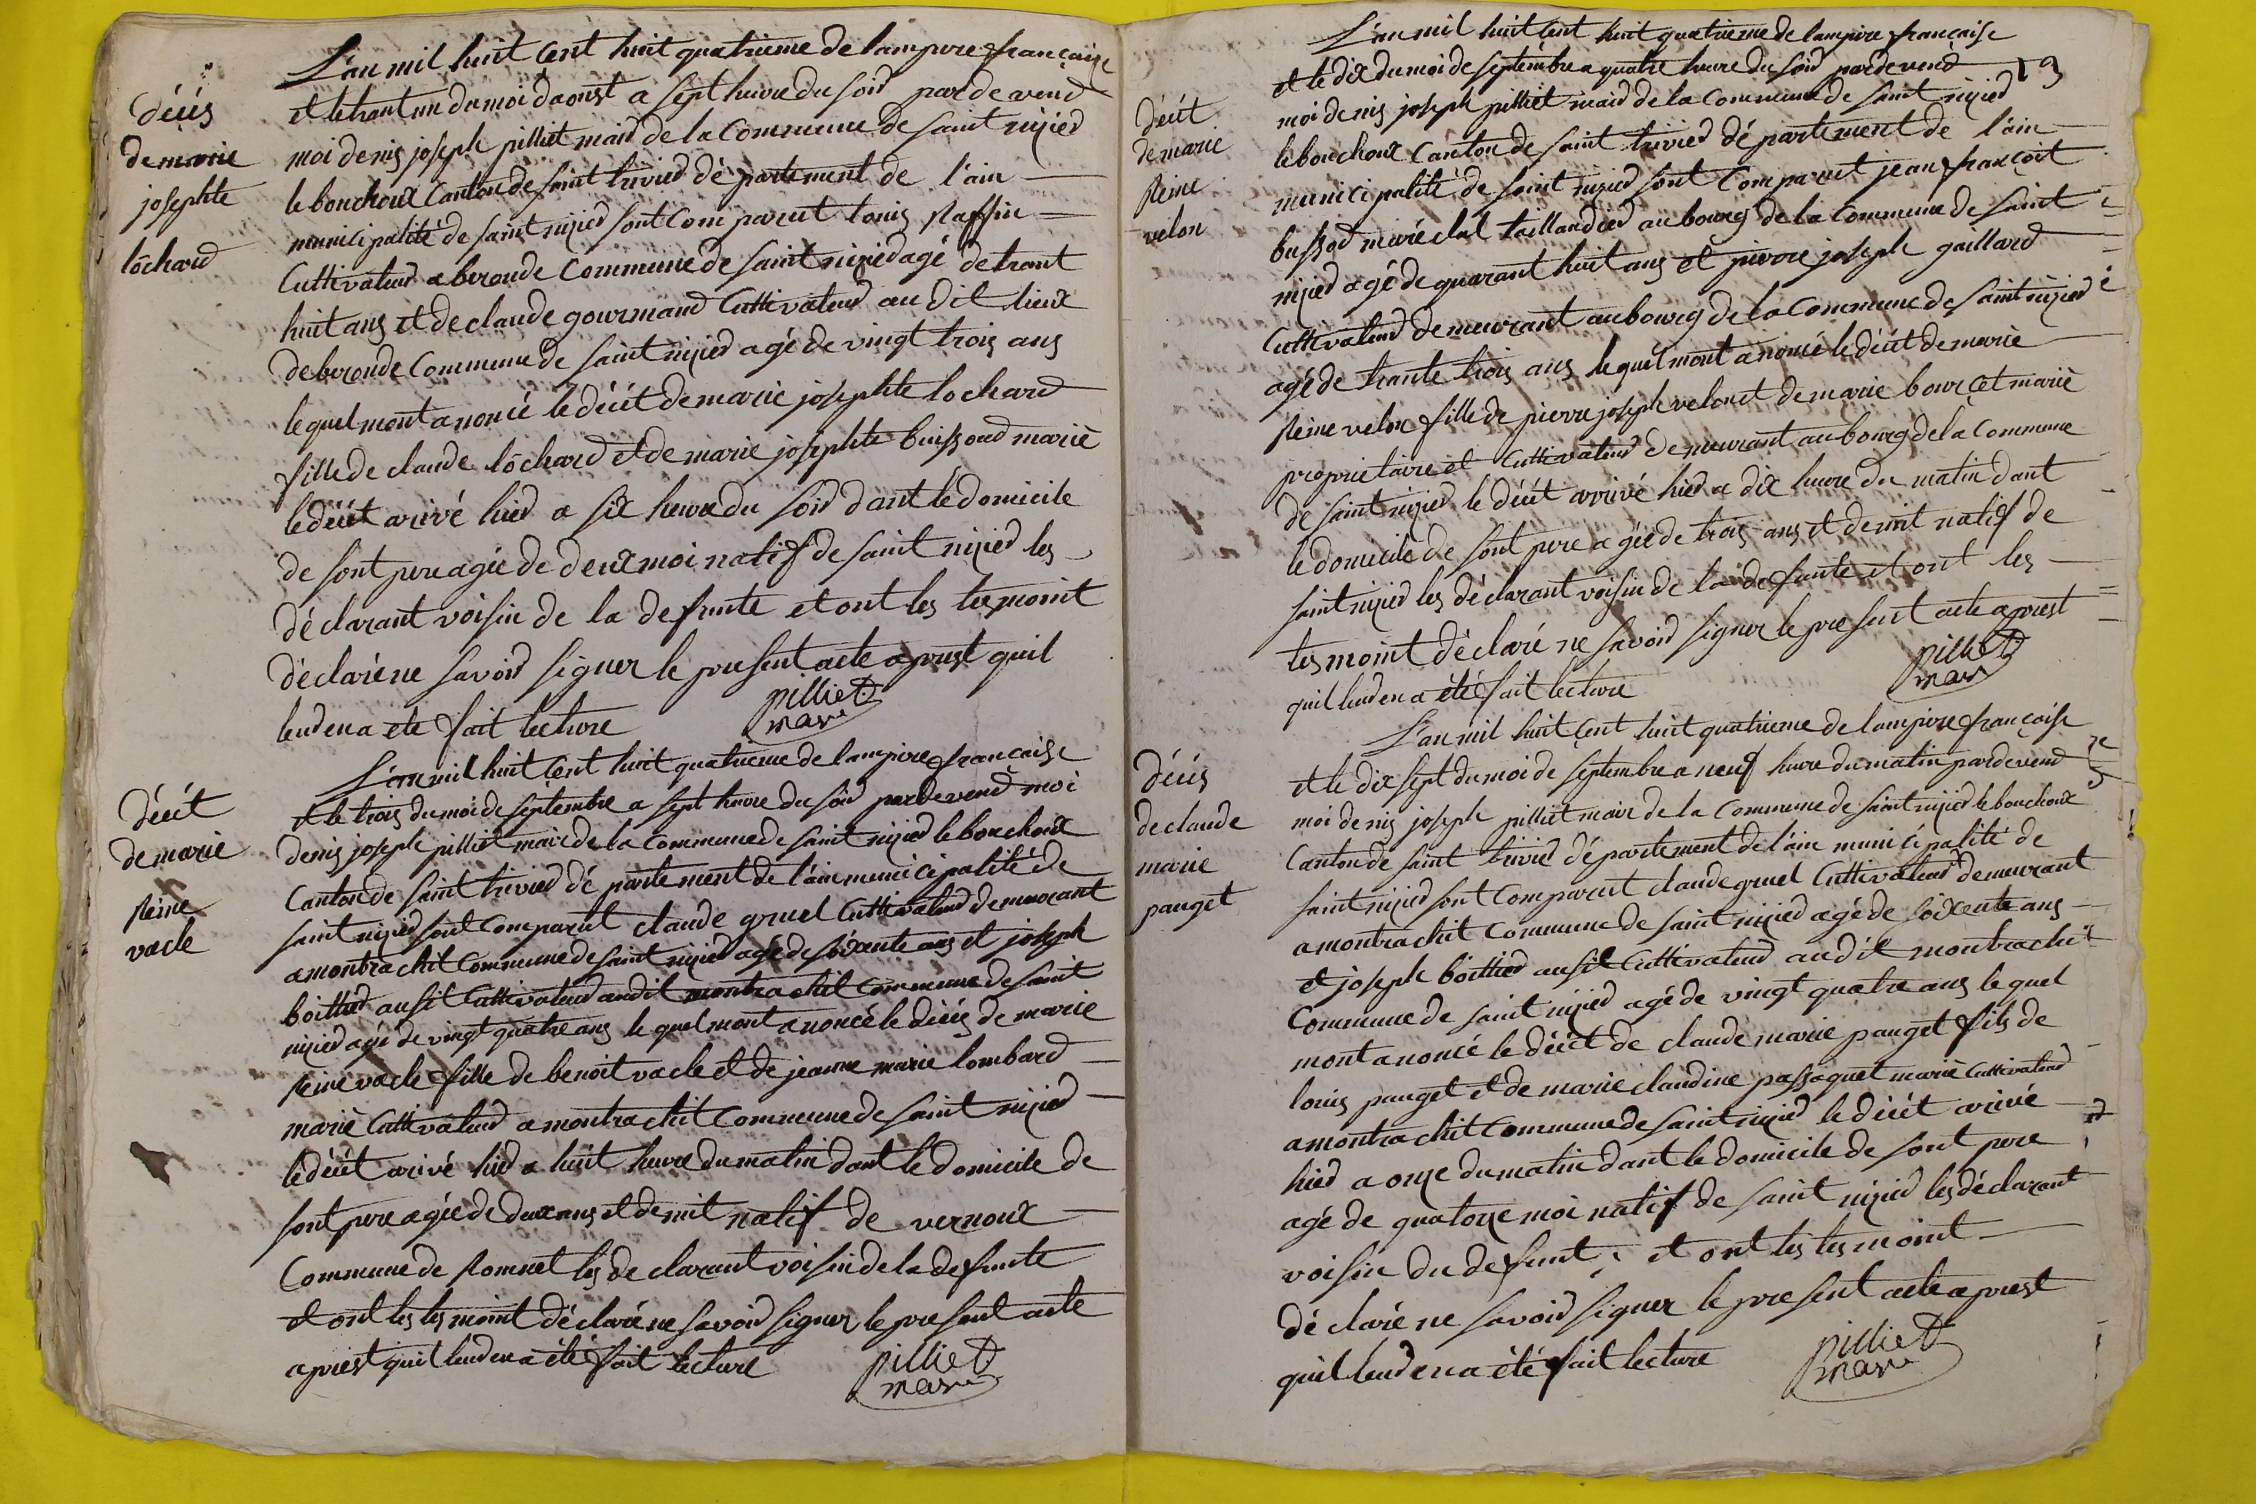 L'an mil huit cent huit quatrieme de lampire française
et le trant un du moi daoust a sept heure du soir par de vend
décés
de marie
josephte
lôchard
moi denis joseph pilliet maire de la Commune de saint nizied
le bouchoux Canton de saint trivied dé partement de l'ain
municipalité de saint nizied sont Comparut louis Raffin
Cultivateur a beronde Commune de saint nizied agé de trant
huit ans et de claude gourmand Cultivateur au dit lieux
de beronde Commune de saint nizied agé de vingt trois ans
le quel mont anoncé le décit de marie josephte lochard
fille de claude lôchard et de marie josephte buissond mariè
le décit arivé hied a six heure du soir dant le domicile
de sont pere agée de deux moi natif de saint nizied les
déclarant voisin de la defunte et ont les tesmoint
déclaré ne savoir signer le present acte aprest quil
leud en a eté fait lecture
pilliet
mare
L'an mil huit cent huit quatrieme de lampire française
et le trois du moi de septembre a sept heure du soir par de vend moi
décit
de marie
Reine
vacle
denis joseph pilliet maire de la Commune de saint nizied le bouchoux
Canton de saint trivied dé partement de l'ain municipalité de
saint nizied sont Comparut claude gruel Cultivateur demeurant
a montrachit Commune de saint nizied agé de soixente ans et joseph
boittier ausit Cultivateur audit montrachit Commune de saint
nizied agé de vingt quatre ans le quel mont anoncé le décés de marie
Reine vacle fille de benoit vacle et de jeanne marie lombard
mariè Cultivateur a montrachit Commune de saint nizied
le décit arivé hied a huit heure du matin dant le domicile de
sont pere agée de deux ans et demit natif de vernoux
Commune de Romnet les declarant voisin de la defunte
et ont les tesmoint déclaré ne savoir signer le present acte
aprest quil leud en a été fait lecture
pilliet
mare
19
L'an mil huit cent huit quatrieme de lampire française
et le dix du moi de septembre a quatre heure du soir par de vend
décit
de marie
Reine
velon
moi denis joseph pilliet maire de la Commune de saint nizied
le bouchoux Canton de saint trivied dé partement de l'ain
municipalité de saint nizied sont Comparut jean françoit
bussod maréchal taillandier au bourg de la Commune de saint
nizied agé de quarant huit ans et pierre joseph gaillard
Cultivateur demeurant au bourg de la Commune de saint nizied
agé de trante trois ans le quel mont anoncé le décit de marie
Reine velon fille de pierre joseph velon et de marie bourcet mariè
proprietaire et Cultivateur demeurant au bourg de la Commune
de saint nizied le décit arrivé hied a dix heure du matin dant
le domicile de sont pere agée de trois ans et demit natif de
saint nizied les déclarant voisin de la defunte et ont les
tesmoint déclaré ne savoir signer le present acte aprest
quil leud en a été fait lecture
pilliet
mare
L'an mil huit cent huit quatrieme de lampire française
et le dix sept du moi de septembre a neuf heure du matin par de vend
décés
de claude
marie
pauget
moi denis joseph pilliet maire de la Commune de saint nizied le bouchoux
Canton de saint trivied dé partement de l'ain municipalité de
saint nizied sont Comparut claude gruel Cultivateur demeurant
a montrachit Commune de saint nizied agé de soixente ans
et joseph boittier ausit Cultivateur audit montrachit
Commune de saint nizied agé de vingt quatre ans le quel
mont anoncé le décit de claude marie pauget fils de
louis pauget et de marie claudine passaquet mariè Cultivateur
a montrachit Commune de saint nizied le décit arivé
hied a onze du matin dant le domicile de sont pere
agé de quatorze moi natif de saint nizied les déclarant
voisin du defunt, et ont les tesmoint
déclaré ne savoir signer le present acte aprest
quil leud en a été fait lecture
pilliet
mare